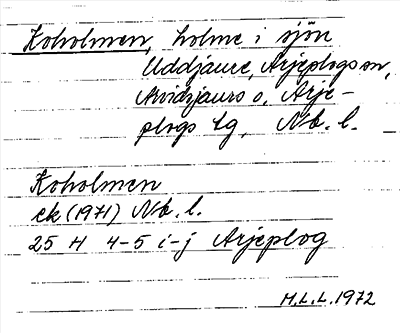 Koholmen, holme i sjön
Uddjaure, Arjeplogs sn,
Arvidsjaurs o. Arje-
plogs tg, Nb. l.
Koholmen
ek (1971) Nb. l.
25 H 4-5 i-j Arjeplog
M.L.L. 1972